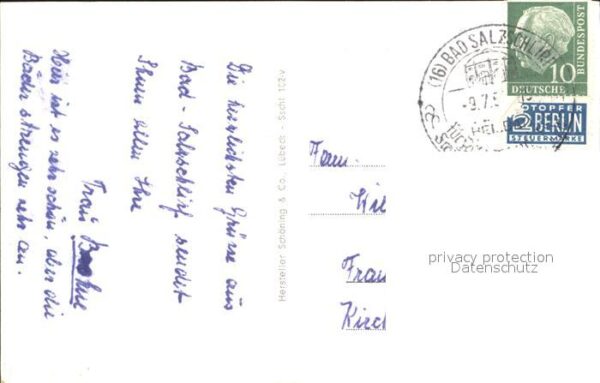 Die herzlichsten Grüsse aus
Bad-Salzschlirf sendet
Ihnen allen Ihre
Frau
Hier ist es sehr schön, aber die
Bäder strengen sehr an.
Hersteller Schöning & Co., Lübeck - Sachl 102v
Fam.
Wil
Frau
Kirch
(16) BAD SALZSCHLIRF
-9.7.5
10
DEUTSCHE
BUNDESPOST
NOTOPFER
2 BERLIN
STEUERMARKE
privacy protection
Datenschutz